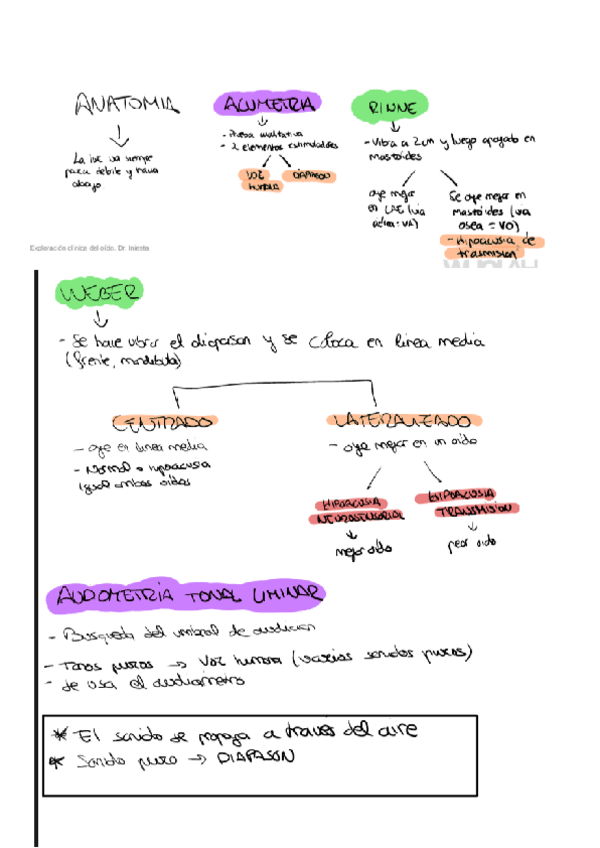 ANATOMIA
La luz va siempre
para detrás y hacia
abajo
ACUMETRIA
- Prueba cualitativa
- 2 elementos estimuladores
VOZ
HUMANA
DIAPASON
RINNE
- Vibra a 2cm y luego apoyado en
mastoides
oye mejor
en CAE (via
aérea = VA)
Se oye mejor en
mastoides (via
osea = VO)
- Hipoacusia de
trasmision
Exploración clínica del oído. Dr. Iniesta
WEBER
- Se hace vibrar el diapason y se coloca en linea media
(frente, mandibula)
CENTRADO
- oye en linea media
- Normal o hipoacusia
igual ambos oidos
LATERALIZADO
- oye mejor en un oido
HIPOACUSIA
NEUROSENSORIAL
mejor oido
HIPOACUSIA
TRANSMISION
peor oido
AUDOMETRIA TONAL LIMINAR
- Busqueda del umbral de audicion
- Tonos puros → Voz humana (varios sonidos puros)
- Se usa el audiometro
* El sonido se propaga a través del aire
* Sonido puro → DIAPASON